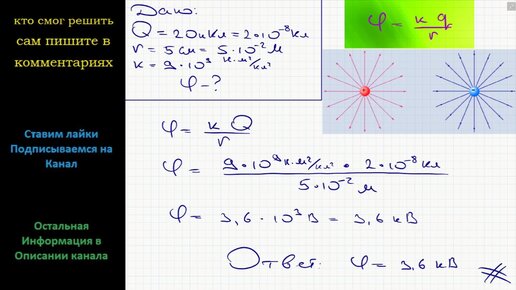 кто смог решить
сам пишите в
комментариях
Ставим лайки
Подписываемся на
Канал
Остальная
Информация в
Описании канала
Дано:
Q = 20нКл = 2·10⁻⁸Кл
r = 5см = 5·10⁻²м
k = 9·10⁹ н·м²/кл²
φ - ?
φ = k q / r
φ = k Q / r
φ = 9·10⁹ н·м²/кл² · 2·10⁻⁸ Кл / 5·10⁻² м
φ = 3,6·10³ В = 3,6 кВ
Ответ: φ = 3,6 кВ